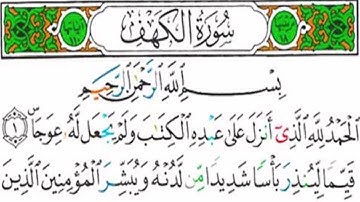 سُورَةُ الكَهْفِ
بِسْمِ اللَّهِ الرَّحْمَٰنِ الرَّحِيمِ
الْحَمْدُ لِلَّهِ الَّذِي أَنزَلَ عَلَىٰ عَبْدِهِ الْكِتَٰبَ وَلَمْ يَجْعَل لَّهُ عِوَجَا ۜ ١
قَيِّمًا لِّيُنذِرَ بَأْسًا شَدِيدًا مِّن لَّدُنْهُ وَيُبَشِّرَ الْمُؤْمِنِينَ الَّذِينَ